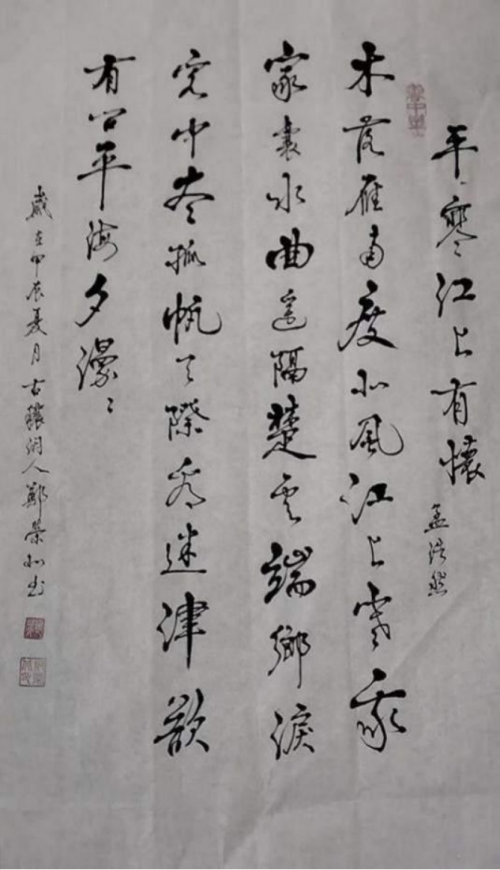 早寒江上有懷 孟浩然
木落雁南度北風江上寒我
家襄水曲遙隔楚云端鄉淚
客中盡孤帆天際看迷津欲
有問平海夕漫〻
歲在甲辰夏月古穰人鄭榮書